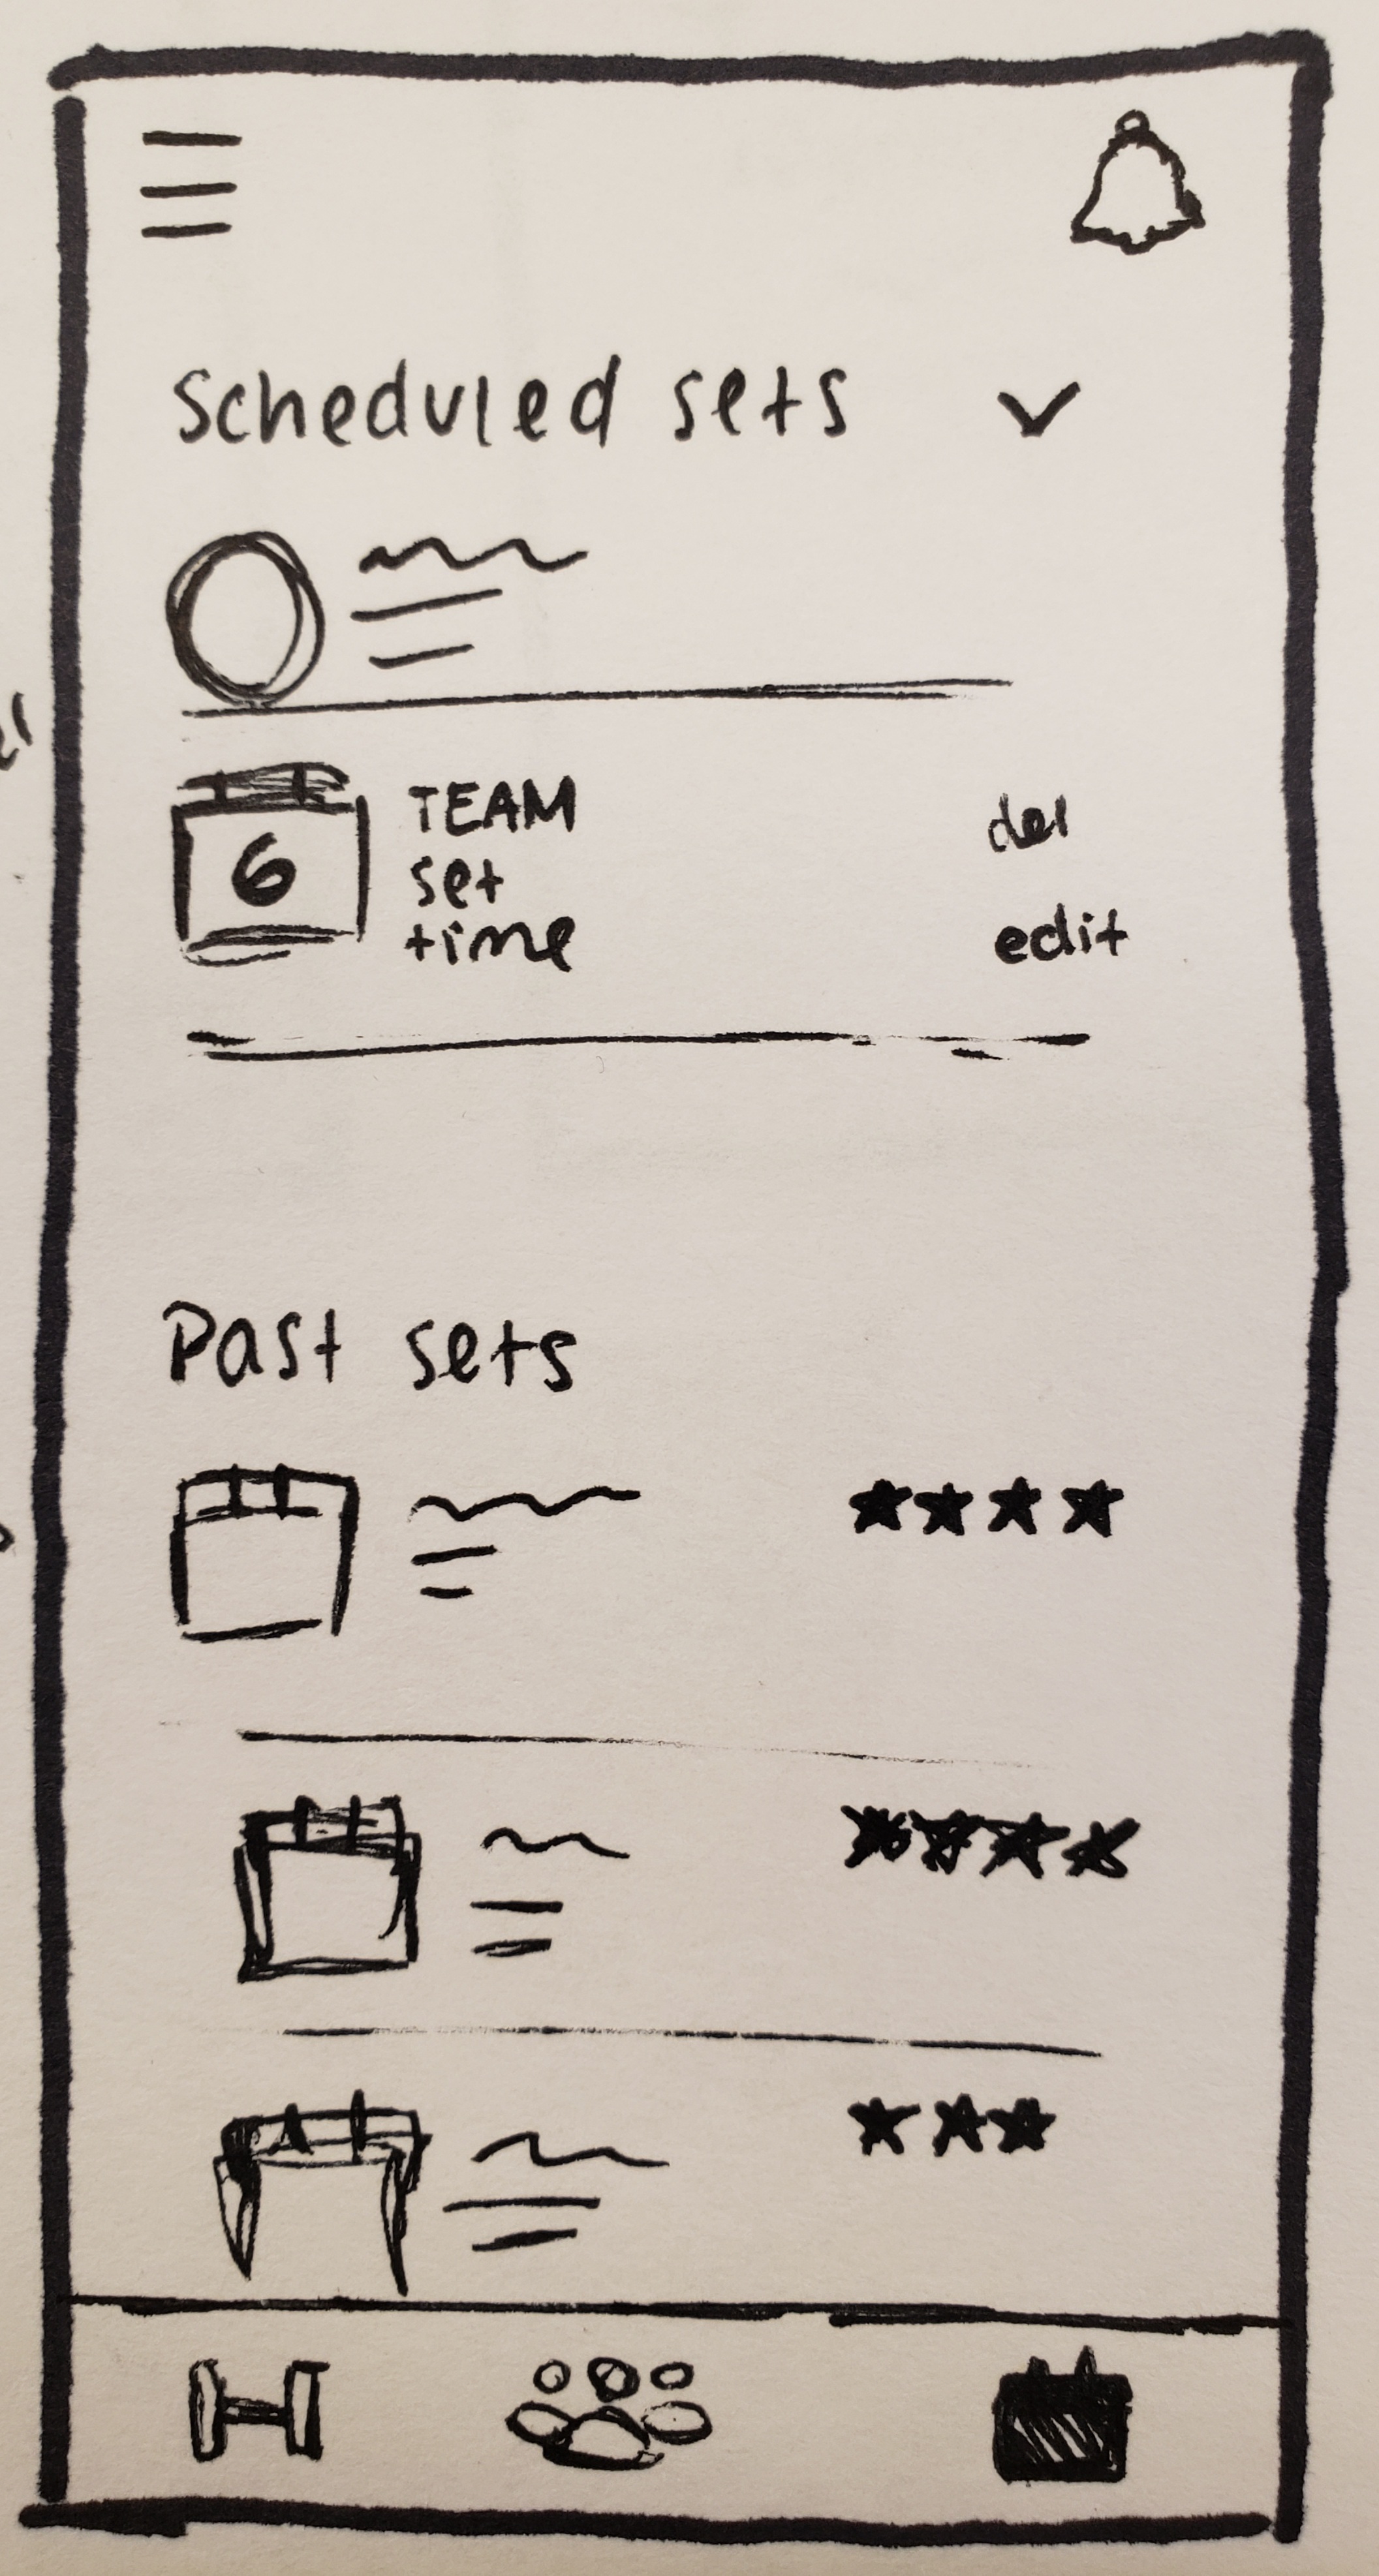 Scheduled sets
6
TEAM
set
time
del
edit
Past sets